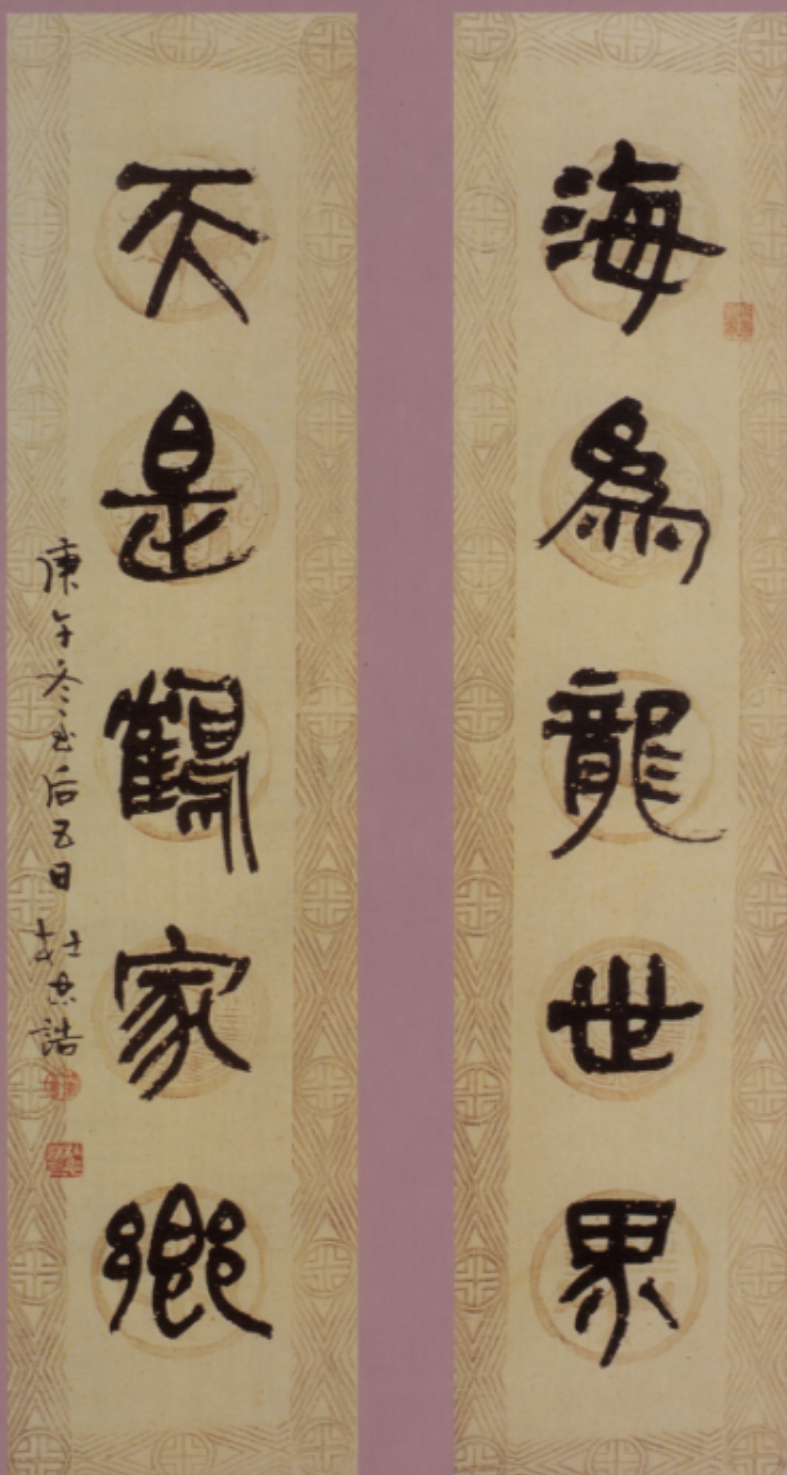 海為龍世界
天是鶴家鄉
庚午冬至后五日 杜忠誥